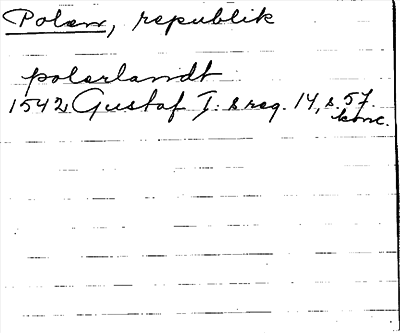 Polen, republik
polerlandt
1542 Gustaf I: s reg. 14, s. 57.
konc.